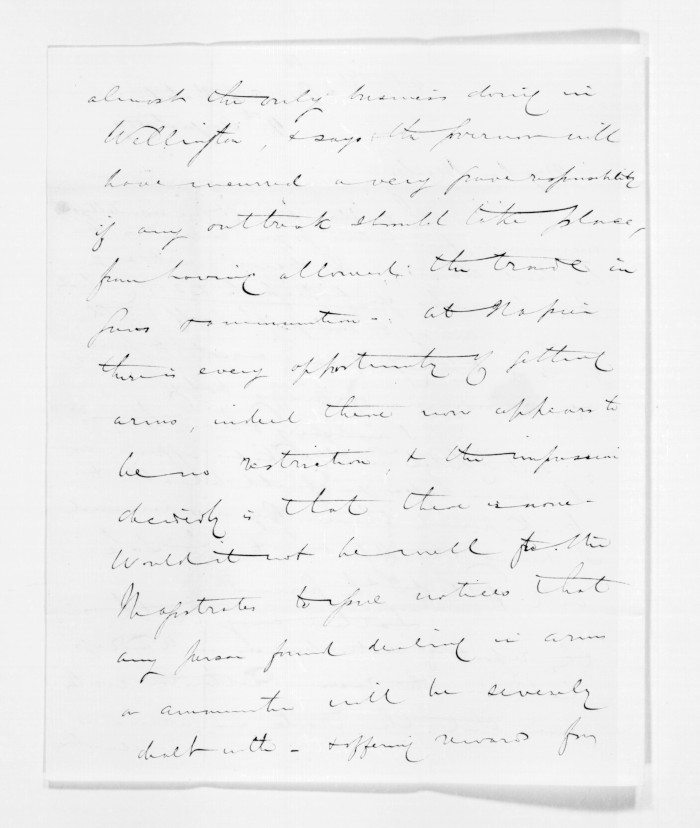 almost the only business doing in
Wellington, & says the governor will
have incurred a very grave responsibility
if any outbreak should take place,
from having allowed the trade in
guns & ammunition - at Napier
there is every opportunity of getting
arms, indeed there now appears to
be no restriction, & the impression
decidedly is that there is none -
Would it not be well for the
Magistrates to issue notices that
any person found dealing in arms
or ammunition will be severely
dealt with - & offering rewards for